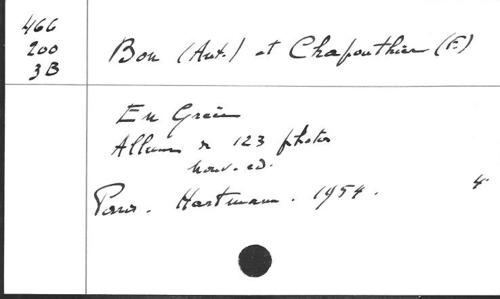 466
200
3B
Bon (Ant.) et Chapouthier (F.)
En Grèce
Album de 123 photos
nouv. ed.
Paris. Hartmann. 1954. 4°